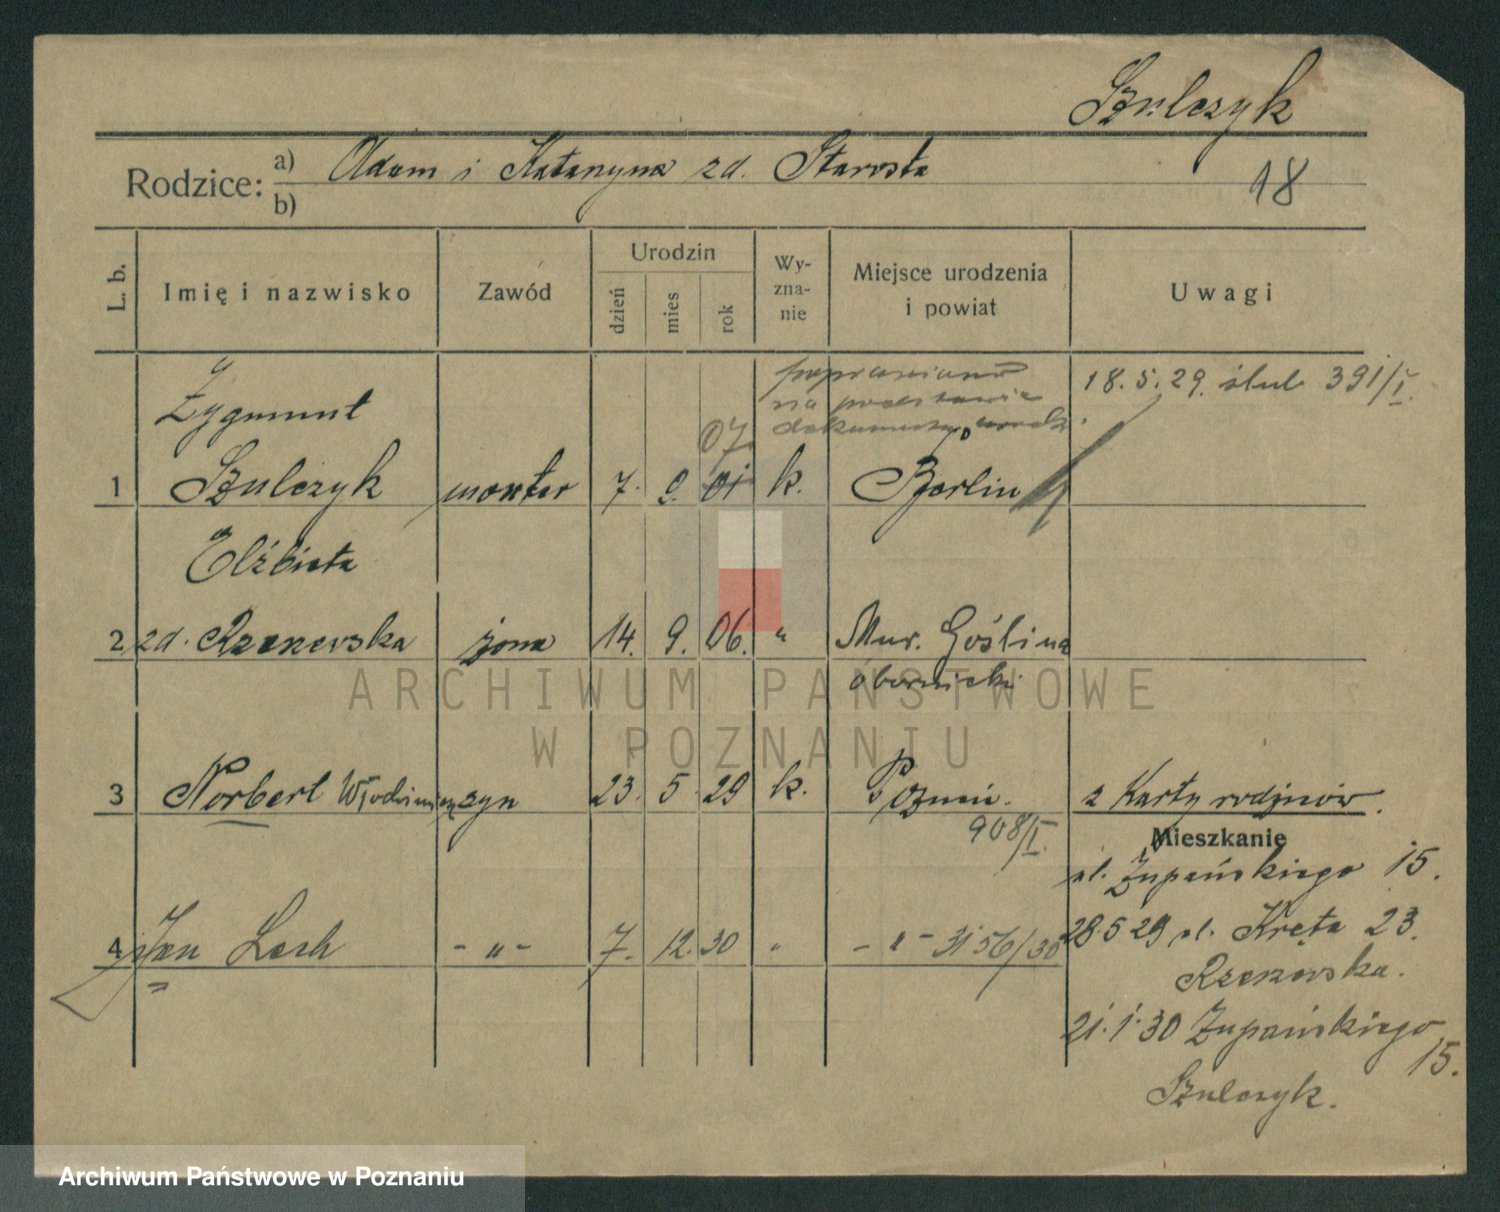 Szulczyk
Rodzice: a) Adam i Katarzyna zd. Starosta
b)
18
L. b.
Imię i nazwisko
Zawód
Urodzin
dzień
mies
rok
Wy-
zna-
nie
Miejsce urodzenia
i powiat
Uwagi
poprawiono
na podstawie
dokumentu urodz.
18.5.29. ślub 391/I.
Zygmunt
07
1 Szulczyk monter 7. 9. 01 k. Berlin
Elżbieta
2 zd. Rzezewska żona 14. 9. 06. " Mur. Goślina
obornicki
3 Norbert Włodzimierz syn 23. 5 29 k. Poznań. z Karty rodzinów.
908/I.
Mieszkanie
ul. Żupańskiego 15.
4 Jan Lech - " - 7. 12. 30 " - " - 3156/30
28.5 29 ul. Kręta 23.
Rzezewska.
21.1.30 Żupańskiego
15.
Szulczyk.
ARCHIWUM PAŃSTWOWE
W POZNANIU
Archiwum Państwowe w Poznaniu